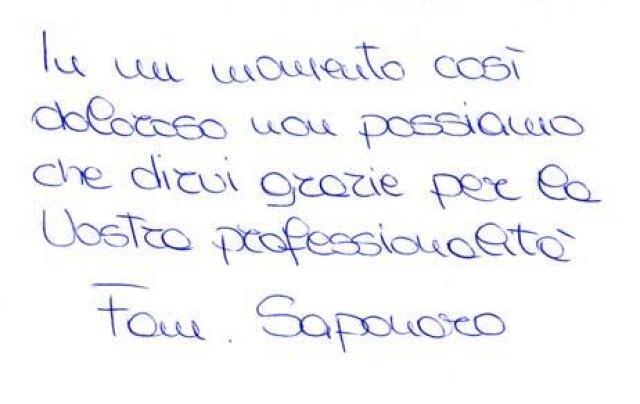 In un momento così
doloroso non possiamo
che dirvi grazie per la
Vostra professionalità
Fam. Saponaro